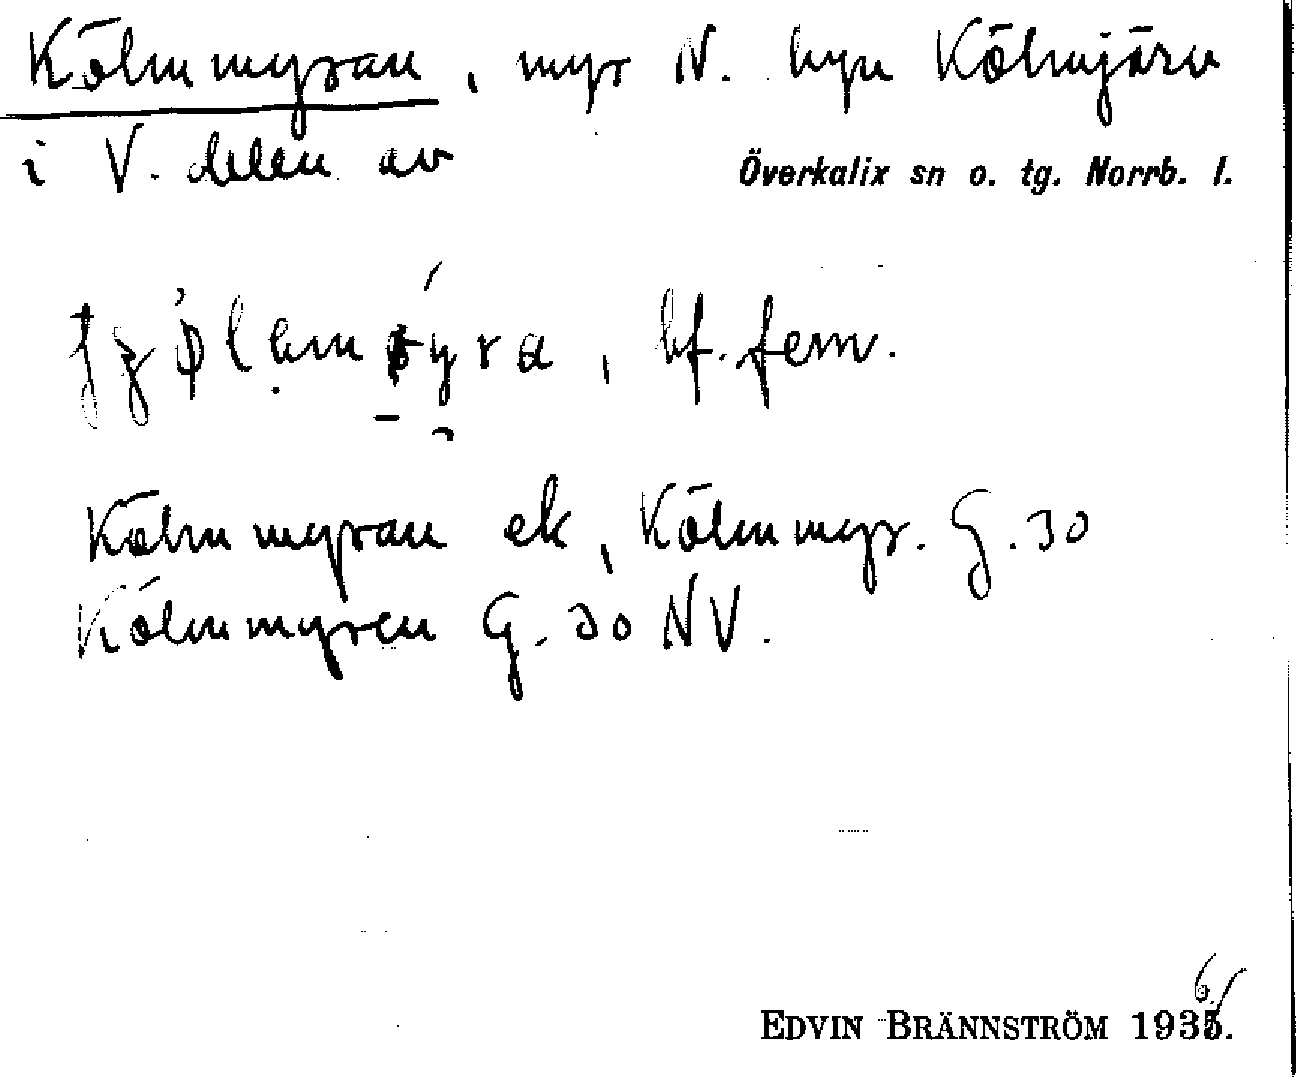 Kölmmyran, myr N. byn Kölmjärv
i V. delen av Överkalix sn o. tg. Norrb. l.
bf. fem.
Kölmmyran ek, Kölmmyr. G. 30
Kölmmyren G. 30 NV.
6/
EDVIN BRÄNNSTRÖM 1935.